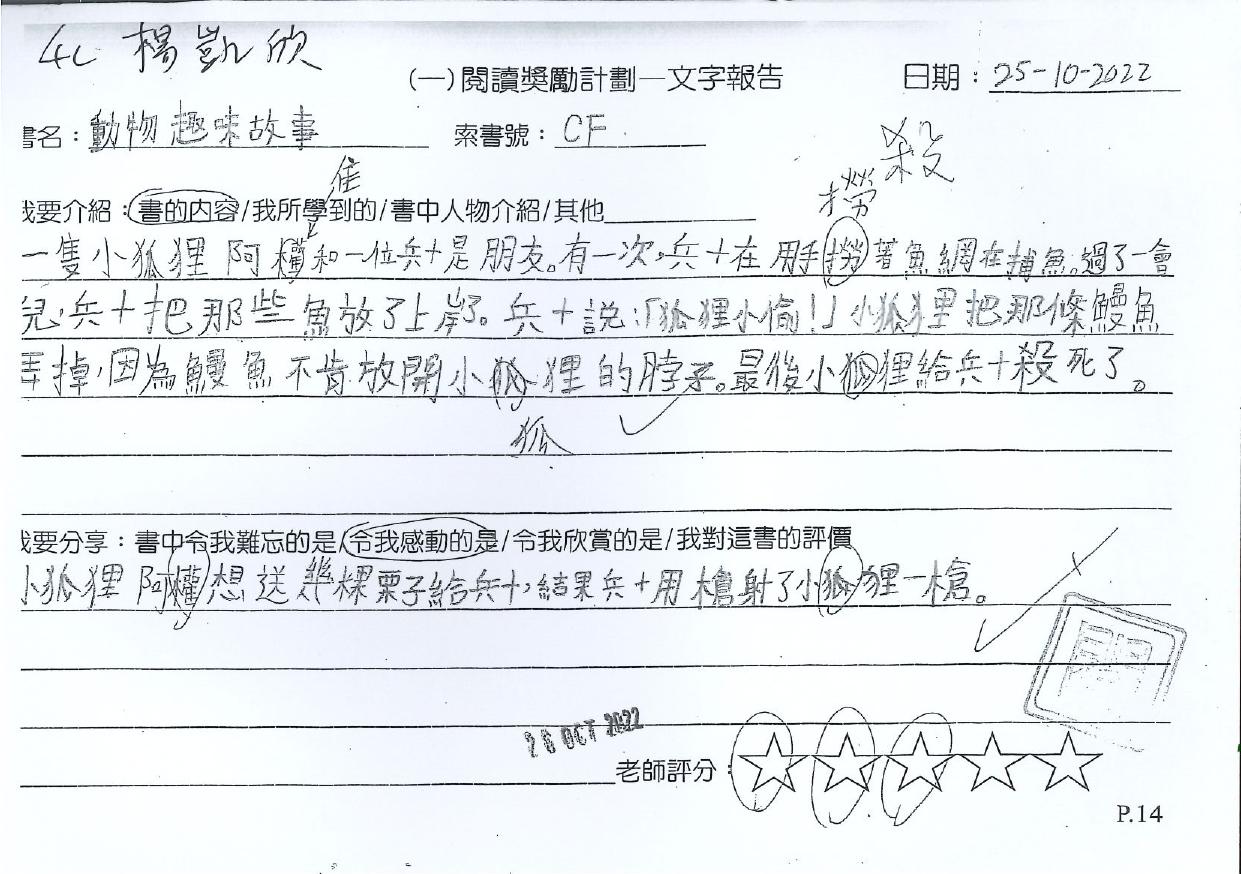 4L 楊凱欣
(一)閱讀獎勵計劃—文字報告 日期：25-10-2022
書名：動物趣味故事 索書號：CF
隹 撈 殺
我要介紹：書的內容/我所學到的/書中人物介紹/其他
一隻小狐狸阿權和一位兵十是朋友。有一次，兵十在用手撈著魚網在捕魚。過了一會
兒，兵十把那些魚放了上岸了。兵十說：「狐狸小偷！」小狐狸把那條鰻魚
弄掉，因為鰻魚不肯放開小狐狸的脖子。最後小狐狸給兵十殺死了。
狐
我要分享：書中令我難忘的是/令我感動的是/令我欣賞的是/我對這書的評價
小狐狸阿權想送幾棵栗子給兵十，結果兵十用槍射了小狐狸一槍。
26 OCT 2022
老師評分：
P.14